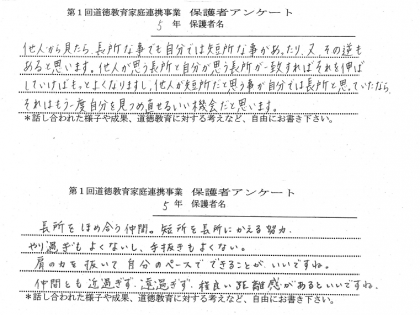 第1回道徳教育家庭連携事業 保護者アンケート
5年 保護者名
他人から見たら、長所な事でも自分では短所な事があったり、又、その逆も
あると思います。他人が思う長所と自分が思う長所が一致すればそれを伸ば
していけばもっとよくなりますし、他人が短所だと思う事が自分では長所と思っていたなら
それはもう一度自分を見つめ直せるいい機会だと思います。
*話し合われた様子や成果、道徳教育に対する考えなど、自由にお書き下さい。
第1回道徳教育家庭連携事業 保護者アンケート
5年 保護者名
長所をほめ合う仲間。短所を長所にかえる努力。
やり過ぎもよくないし、手抜きもよくない。
肩の力を抜いて自分のペースでできることがいいですね。
仲間とも近過ぎず、遠過ぎず、程良い距離感があるといいですね。
*話し合われた様子や成果、道徳教育に対する考えなど、自由にお書き下さい。